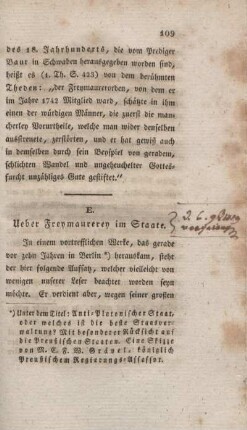 109
des 18. Jahrhunderts, die vom Perdiger
Baur in Schwaden herausgegeben worden sind,
heißt es (1. Th. S. 423) von dem berühmten
Theden: „der Freymaurerorden, von dem
er im Jahre 1742 Mitglied ward, schätzte in ihm
einen der würdigen Männer, die zuerst die man-
cherley Vorurtheile, welche man wider denselben
ausstreuete, zerstörten, und er hat gewiß auch
in demselben durch sein Beyspiel von geradem,
schlichten Wandel und ungeheuchelter Gottes-
furcht unzähliges Gute gestiftet.“
E.
Ueber Freymaurerey im Staate.
In einem vortrefflichen Werke, das gerade
vor zehn Jahren in Berlin *) herauskam, steht
der hier folgende Aufsatz, welcher vielleicht von
wenigen unserer Leser beachtet worden seyn
möchte. Er verdient aber, wegen seiner großen
*) Unter dem Titel: Anti-Platonischer Staat,
oder welches ist die beste Staatsver-
waltung? Mit besonderer Rücksicht auf
die Preußischen Staaten. Eine Skizze
von M. C. F. W. Grävel, königlich
Preußischem Regierungs-Assessor.